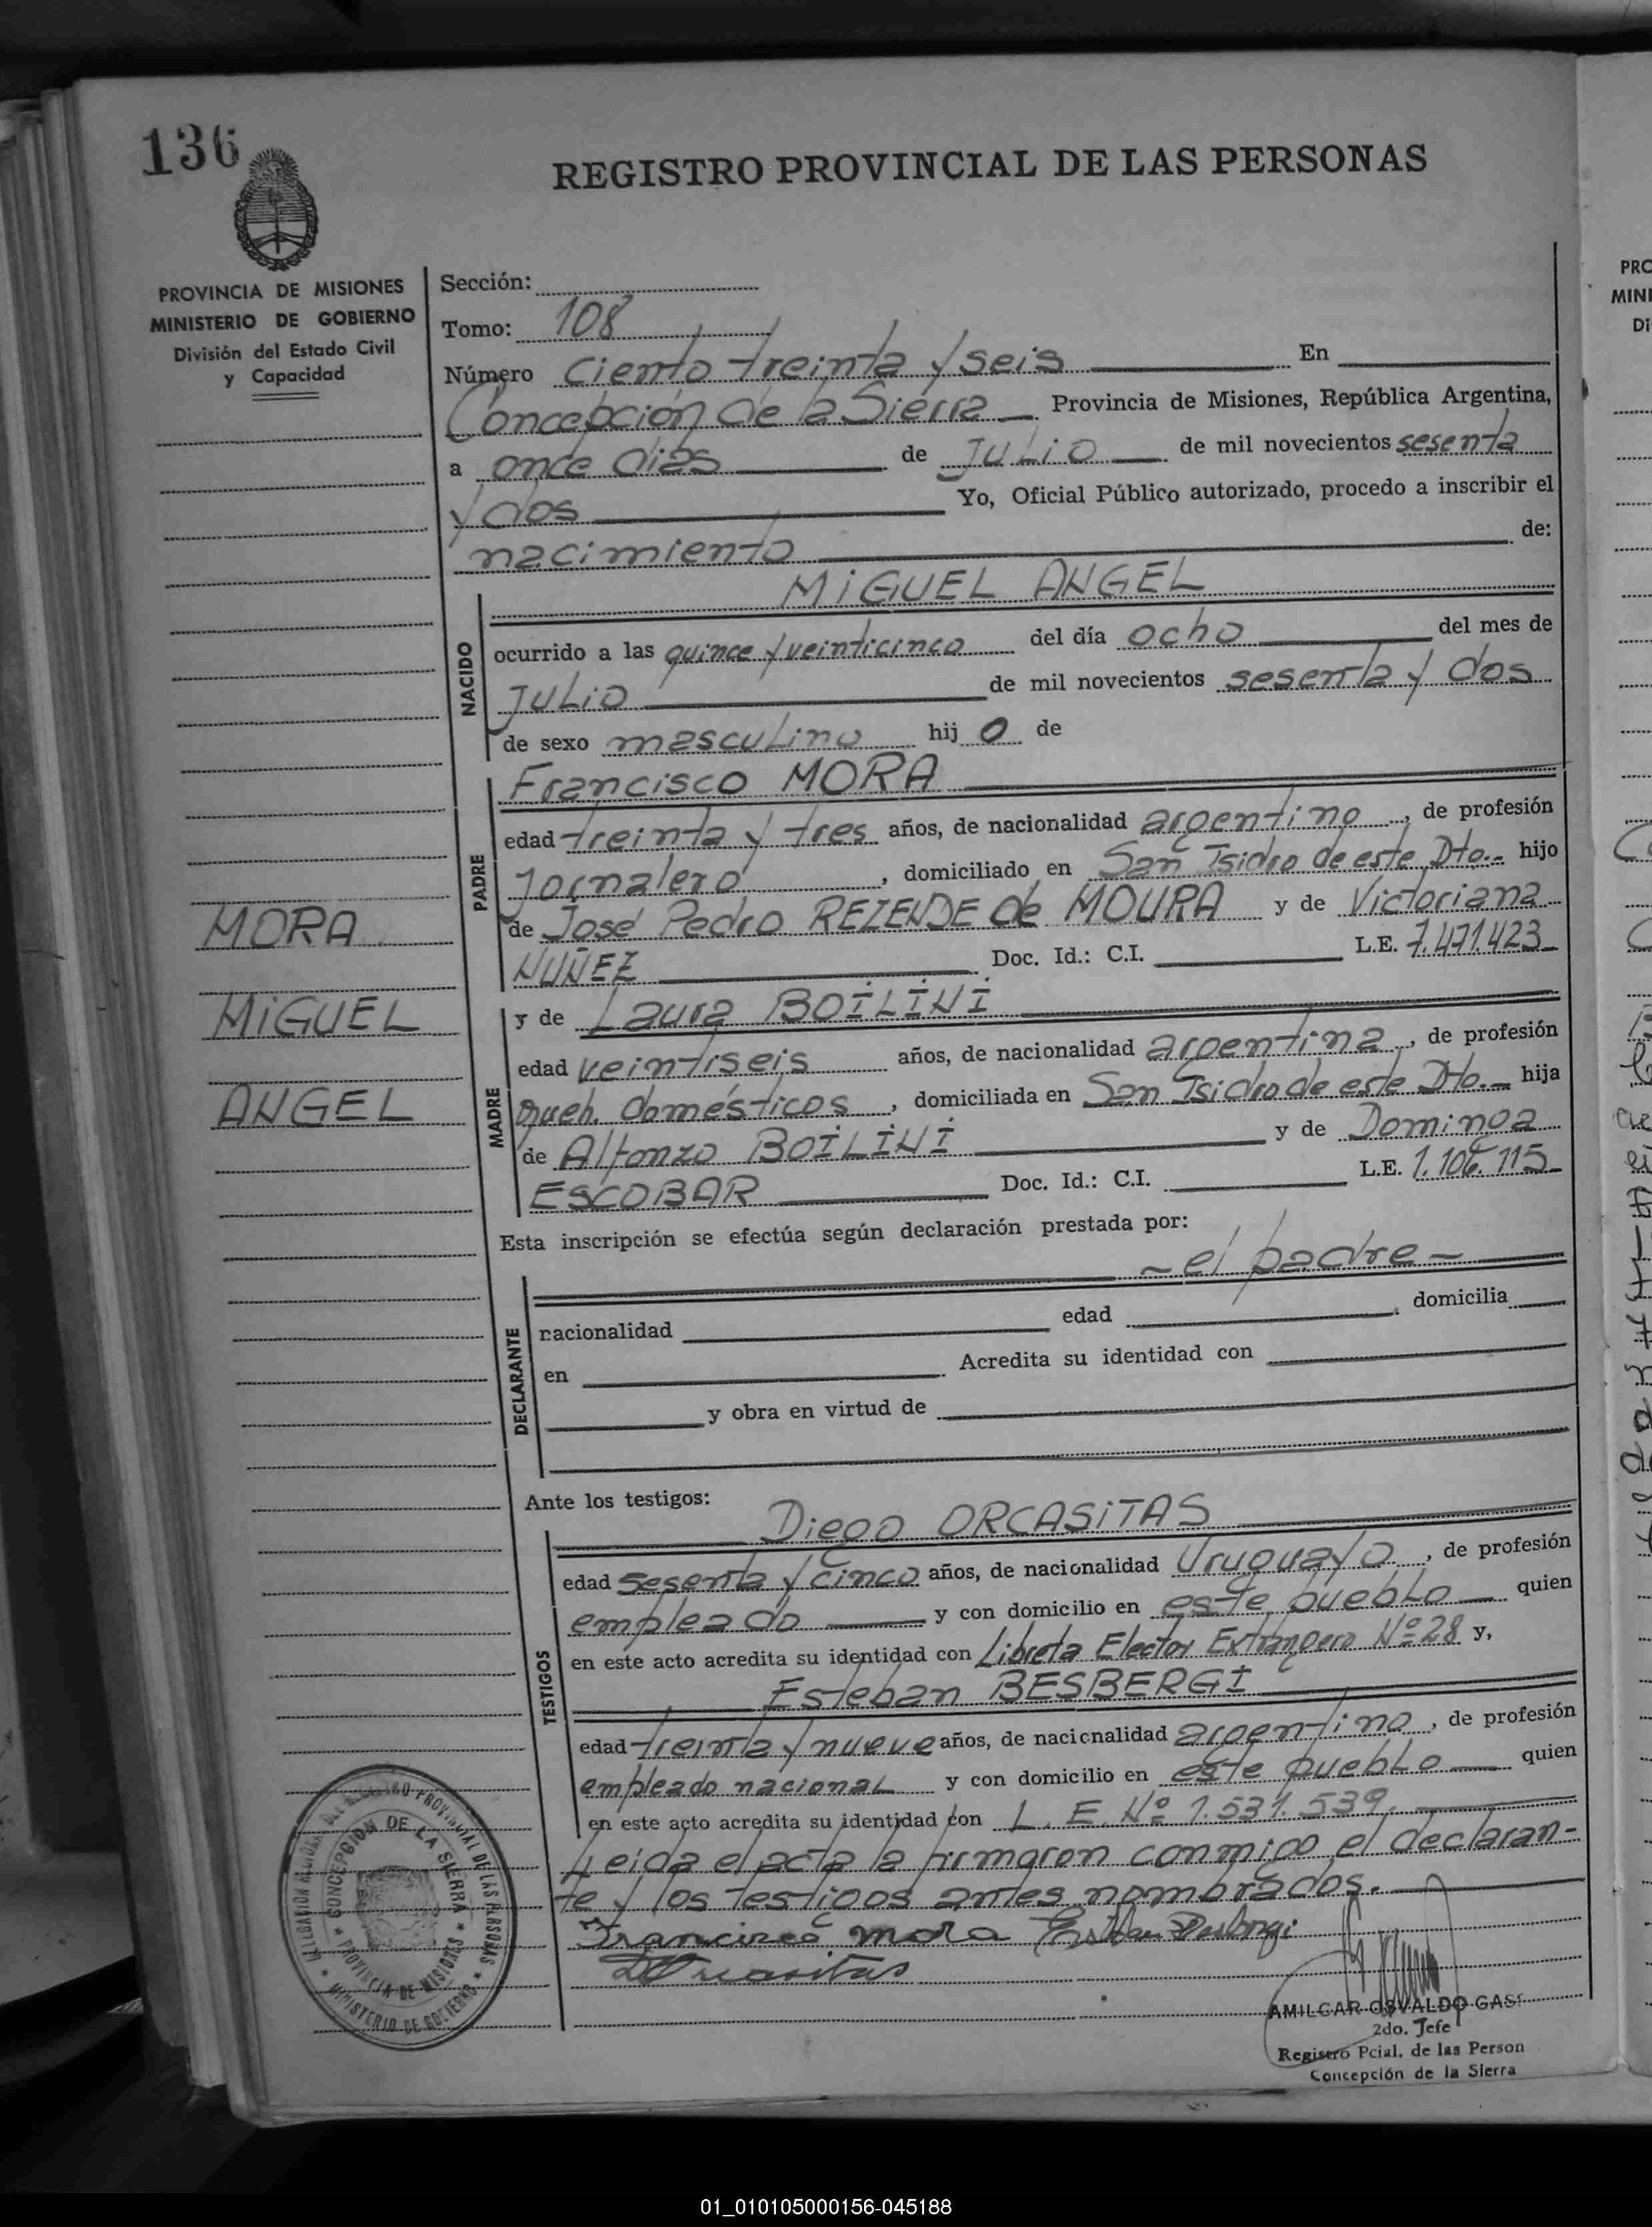 136
REGISTRO PROVINCIAL DE LAS PERSONAS
PROVINCIA DE MISIONES
MINISTERIO DE GOBIERNO
División del Estado Civil
y Capacidad
Sección:
Tomo: 108
Número ciento treinta y seis En
Concepción de la Sierra Provincia de Misiones, República Argentina,
a once días de JULIO de mil novecientos sesenta
y dos Yo, Oficial Público autorizado, procedo a inscribir el
nacimiento de:
NACIDO
MIGUEL ANGEL
ocurrido a las quince y veinticinco del día ocho del mes de
JULIO de mil novecientos sesenta y dos
de sexo masculino hij o de
PADRE
Francisco MORA
edad treinta y tres años, de nacionalidad argentino, de profesión
Jornalero, domiciliado en San Isidro de este Dto. hijo
de José Pedro REZENDE de MOURA y de Victoriana
NUÑEZ Doc. Id.: C.I. L.E. 7.471.423
MORA
MIGUEL
ANGEL
MADRE
y de Laura BOILINI
edad veintiseis años, de nacionalidad argentina, de profesión
queh. domésticos, domiciliada en San Isidro de este Dto. hija
de Alfonzo BOILINI y de Dominga
ESCOBAR Doc. Id.: C.I. L.E. 1.106.115
Esta inscripción se efectúa según declaración prestada por:
- el padre -
DECLARANTE
nacionalidad edad domicilia
en Acredita su identidad con
y obra en virtud de
Ante los testigos:
TESTIGOS
Diego ORCASITAS
edad sesenta y cinco años, de nacionalidad Uruguayo, de profesión
empleado y con domicilio en este pueblo quien
en este acto acredita su identidad con Libreta Elector Extrangero Nº 28 y,
Esteban BESBERGI
edad treinta y nueve años, de nacionalidad argentino, de profesión
empleado nacional y con domicilio en este pueblo quien
en este acto acredita su identidad con L. E. Nº 1.531.539.
Leida el acta la firmaron conmigo el declaran-
te y los testigos antes nombrados.
Francisco Mora
DOrcasitas
DELEGACION REGISTRO PROVINCIAL DE LAS PERSONAS
MINISTERIO DE GOBIERNO
CONCEPCION DE LA SIERRA
PROVINCIA DE MISIONES
AMILCAR OSVALDO GASS
2do. Jefe
Registro Pcial. de las Person
Concepción de la Sierra
PRO
MINI
Di
01_010105000156-045188